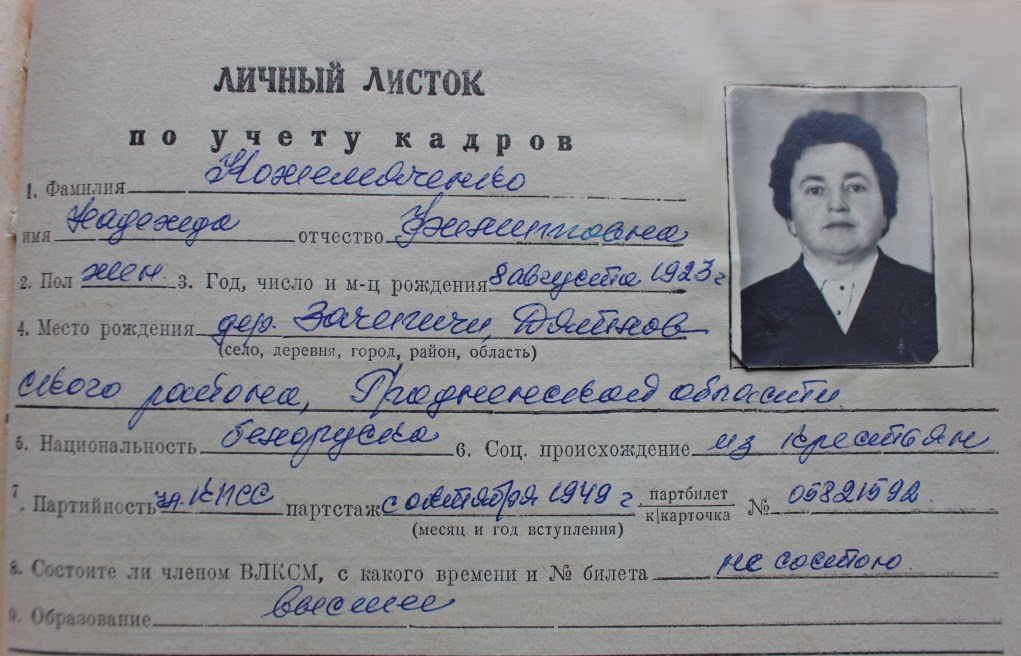 ЛИЧНЫЙ ЛИСТОК
по учету кадров
1. Фамилия Кожемяченко
имя Надежда отчество Филипповна
2. Пол жен. 3. Год, число и м-ц рождения 8 августа 1923 г
4. Место рождения дер. Зачепичи, Дятлов
(село, деревня, город, район, область)
ского района, Гродненской области
5. Национальность белоруска 6. Соц. происхождение из крестьян
7. Партийность чл. КПСС партстаж с октября 1949 г. партбилет
к|карточка № 05821592
(месяц и год вступления)
8. Состоите ли членом ВЛКСМ, с какого времени и № билета не состою
9. Образование высшее